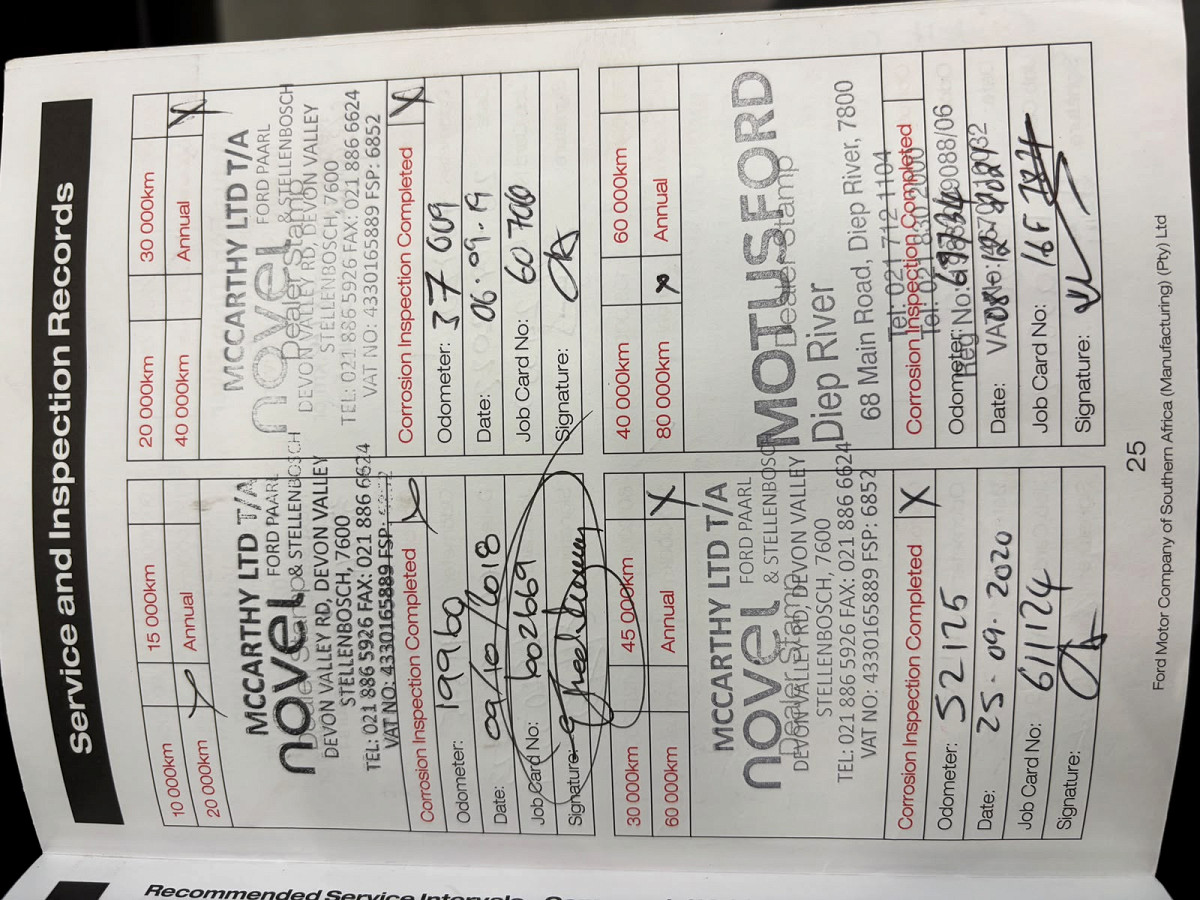 Service and Inspection Records
10 000km 15 000km
20 000km X Annual
MCCARTHY LTD T/A
novel FORD PAARL
& STELLENBOSCH
DEVON VALLEY RD, DEVON VALLEY
STELLENBOSCH, 7600
TEL: 021 886 5926 FAX: 021 886 6624
VAT NO: 4330165889 FSP:
Corrosion Inspection Completed X
Odometer: 19960
Date: 09/10/2018
Job Card No: 6002669
Signature:
20 000km 30 000km
40 000km Annual X
MCCARTHY LTD T/A
novel FORD PAARL
Dealer Stamp & STELLENBOSCH
DEVON VALLEY RD, DEVON VALLEY
STELLENBOSCH, 7600
TEL: 021 886 5926 FAX: 021 886 6624
VAT NO: 4330165889 FSP: 6852
Corrosion Inspection Completed X
Odometer: 37 609
Date: 06.09.19
Job Card No: 60 700
Signature:
30 000km 45 000km
60 000km Annual X
MCCARTHY LTD T/A
novel FORD PAARL
Dealer Stamp & STELLENBOSCH
DEVON VALLEY RD, DEVON VALLEY
STELLENBOSCH, 7600
TEL: 021 886 5926 FAX: 021 886 6624
VAT NO: 4330165889 FSP: 6852
Corrosion Inspection Completed X
Odometer: 52 1125
Date: 25.09.2020
Job Card No: 611124
Signature:
40 000km 60 000km
80 000km X Annual
MOTUSFORD
Dealer Stamp
Diep River
68 Main Road, Diep River, 7800
Tel: 021 712 1104
Corrosion Inspection Completed
Odometer:
Date:
Job Card No: 16F
Signature:
25
Ford Motor Company of Southern Africa (Manufacturing) (Pty) Ltd
Recommended Service Intervals